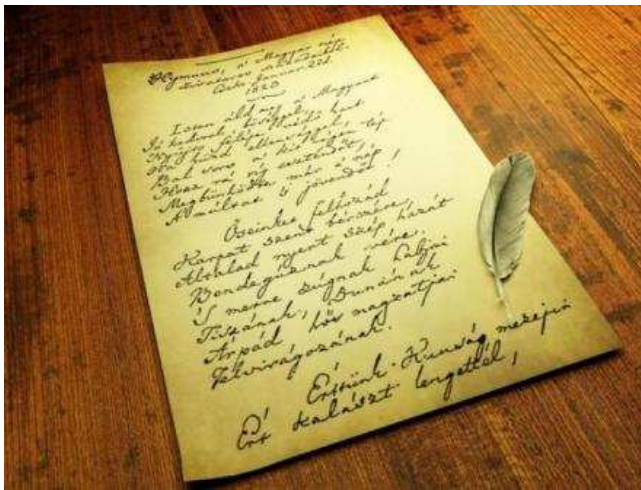 Hymnus, a' Magyar nép
zivataros századaiból.
Cseke, Januar 22d.
1823
Isten áldd meg a' Magyart
Jó kedvvel, bőséggel,
Nyújts feléje védő kart
Ha küzd ellenséggel;
Bal sors a' kit régen tép
Hozz reá víg esztendőt,
Megbűnhödte már e' nép
A' múltat 's jövendőt!
Őseinket felhozád
Karpat szent bérczére,
Általad nyert szép hazát
Bendegúznak vére.
'S merre zúgnak habjai
Tiszának, Dunának
Árpád hős magzatjai
Felvirágozának.
Értünk Kunság mezejin
Ért kalászt lengettél,